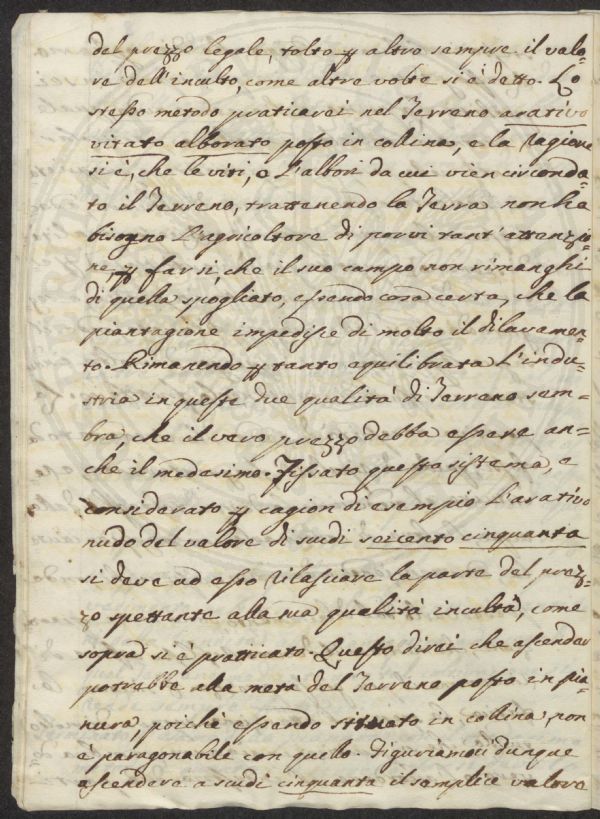 del prezzo legale, tolto p altro sempre il valo=
re dell'inculto, come altre volte si è detto. Lo
stesso metodo praticarei nel Terreno arativo
vitato alborato posto in collina, e la ragione
si è, che le viti, e l'albori da cui vien circonda=
to il Terreno, trattenendo la Terra non há
bisogno l'agricoltore di porvi tant'attenzio=
ne p farsi, che il suo campo non rimanghi
di quella spogliato, essendo cosa certa, che la
piantagione impedisce di molto il dilavamen=
to. Rimanendo p tanto equilibrata l'indu=
stria in queste due qualità di Terreno sem=
bra, che il vero prezzo debba essere an=
che il medesimo. Fissato questo sistema, e
considerato p cagion di esempio l'arativo
nudo del valore di scudi seicento cinquanta
si deve ad esso rilasciare la parte del prez=
zo spettante alla sua qualità inculta, come
sopra si è pratticato. Questo direi che ascender
potrebbe alla metà del Terreno posto in pia=
nura, poichè essendo situato in collina non
è paragonabile con quello. Figuriamoci dunque
ascendere a scudi cinquanta il semplice valore